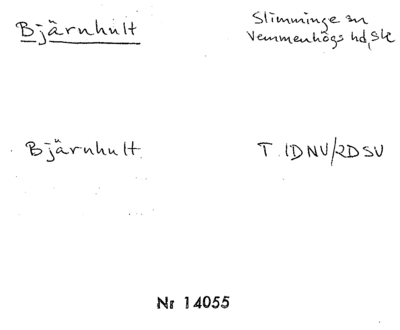 Bjärnhult
Slimminge sn
Vemmenhögs hd, Sk
Bjärnhult
T. 1DNV/2DSV
Nr 14055